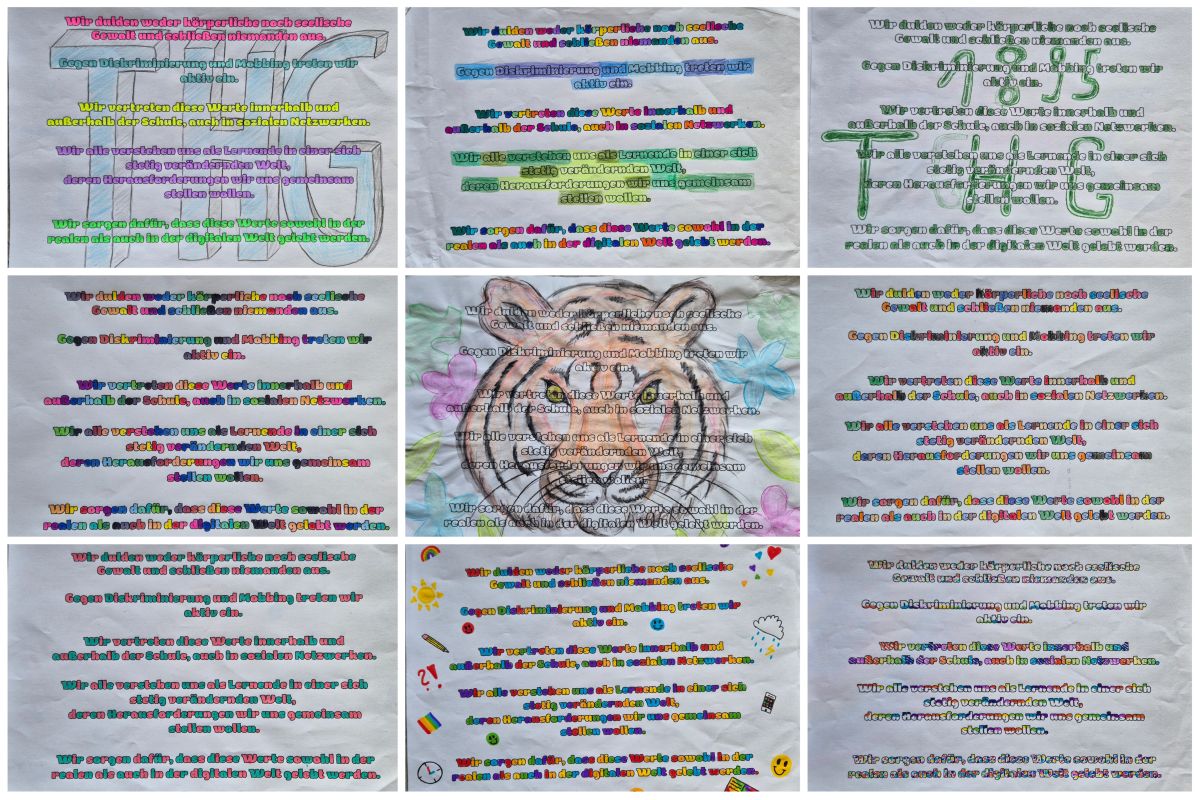 Wir dulden weder körperliche noch seelische
Gewalt und schließen niemanden aus.
Gegen Diskriminierung und Mobbing treten wir
aktiv ein.
Wir vertreten diese Werte innerhalb und
außerhalb der Schule, auch in sozialen Netzwerken.
Wir alle verstehen uns als Lernende in einer sich
stetig verändernden Welt,
deren Herausforderungen wir uns gemeinsam
stellen wollen.
Wir sorgen dafür, dass diese Werte sowohl in der
realen als auch in der digitalen Welt gelebt werden.
THG
Wir dulden weder körperliche noch seelische
Gewalt und schließen niemanden aus.
Gegen Diskriminierung und Mobbing treten wir
aktiv ein.
Wir vertreten diese Werte innerhalb und
außerhalb der Schule, auch in sozialen Netzwerken.
Wir alle verstehen uns als Lernende in einer sich
stetig verändernden Welt,
deren Herausforderungen wir uns gemeinsam
stellen wollen.
Wir sorgen dafür, dass diese Werte sowohl in der
realen als auch in der digitalen Welt gelebt werden.
Wir dulden weder körperliche noch seelische
Gewalt und schließen niemanden aus.
1895
Gegen Diskriminierung und Mobbing treten wir
aktiv ein.
Wir vertreten diese Werte innerhalb und
außerhalb der Schule, auch in sozialen Netzwerken.
THG
Wir alle verstehen uns als Lernende in einer sich
stetig verändernden Welt,
deren Herausforderungen wir uns gemeinsam
stellen wollen.
Wir sorgen dafür, dass diese Werte sowohl in der
realen als auch in der digitalen Welt gelebt werden.
Wir dulden weder körperliche noch seelische
Gewalt und schließen niemanden aus.
Gegen Diskriminierung und Mobbing treten wir
aktiv ein.
Wir vertreten diese Werte innerhalb und
außerhalb der Schule, auch in sozialen Netzwerken.
Wir alle verstehen uns als Lernende in einer sich
stetig verändernden Welt,
deren Herausforderungen wir uns gemeinsam
stellen wollen.
Wir sorgen dafür, dass diese Werte sowohl in der
realen als auch in der digitalen Welt gelebt werden.
Wir dulden weder körperliche noch seelische
Gewalt und schließen niemanden aus.
Gegen Diskriminierung und Mobbing treten wir
aktiv ein.
Wir vertreten diese Werte innerhalb und
außerhalb der Schule, auch in sozialen Netzwerken.
Wir alle verstehen uns als Lernende in einer sich
stetig verändernden Welt,
deren Herausforderungen wir uns gemeinsam
stellen wollen.
Wir sorgen dafür, dass diese Werte sowohl in der
realen als auch in der digitalen Welt gelebt werden.
Wir dulden weder körperliche noch seelische
Gewalt und schließen niemanden aus.
Gegen Diskriminierung und Mobbing treten wir
aktiv ein.
Wir vertreten diese Werte innerhalb und
außerhalb der Schule, auch in sozialen Netzwerken.
Wir alle verstehen uns als Lernende in einer sich
stetig verändernden Welt,
deren Herausforderungen wir uns gemeinsam
stellen wollen.
Wir sorgen dafür, dass diese Werte sowohl in der
realen als auch in der digitalen Welt gelebt werden.
Wir dulden weder körperliche noch seelische
Gewalt und schließen niemanden aus.
Gegen Diskriminierung und Mobbing treten wir
aktiv ein.
Wir vertreten diese Werte innerhalb und
außerhalb der Schule, auch in sozialen Netzwerken.
Wir alle verstehen uns als Lernende in einer sich
stetig verändernden Welt,
deren Herausforderungen wir uns gemeinsam
stellen wollen.
Wir sorgen dafür, dass diese Werte sowohl in der
realen als auch in der digitalen Welt gelebt werden.
Wir dulden weder körperliche noch seelische
Gewalt und schließen niemanden aus.
Gegen Diskriminierung und Mobbing treten wir
aktiv ein.
Wir vertreten diese Werte innerhalb und
außerhalb der Schule, auch in sozialen Netzwerken.
?!
Wir alle verstehen uns als Lernende in einer sich
stetig verändernden Welt,
deren Herausforderungen wir uns gemeinsam
stellen wollen.
Wir sorgen dafür, dass diese Werte sowohl in der
realen als auch in der digitalen Welt gelebt werden.
Wir dulden weder körperliche noch seelische
Gewalt und schließen niemanden aus.
Gegen Diskriminierung und Mobbing treten wir
aktiv ein.
Wir vertreten diese Werte innerhalb und
außerhalb der Schule, auch in sozialen Netzwerken.
Wir alle verstehen uns als Lernende in einer sich
stetig verändernden Welt,
deren Herausforderungen wir uns gemeinsam
stellen wollen.
Wir sorgen dafür, dass diese Werte sowohl in der
realen als auch in der digitalen Welt gelebt werden.